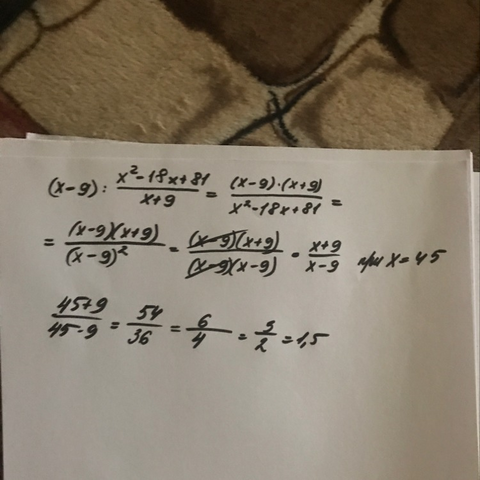 (x-9) : x²-18x+81 / x+9 = (x-9)·(x+9) / x²-18x+81 =
= (x-9)(x+9) / (x-9)² = (x-9)(x+9) / (x-9)(x-9) = x+9 / x-9 при x=45
45+9 / 45-9 = 54 / 36 = 6 / 4 = 3 / 2 = 1,5